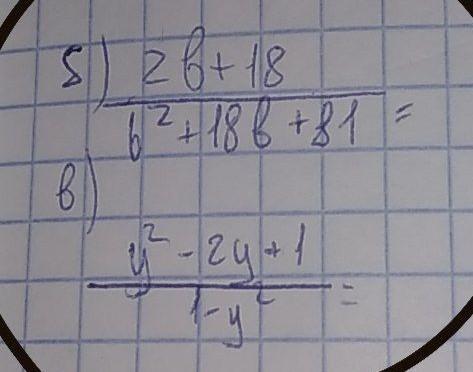 б) 2b+18
b²+18b+81 =
в)
y² - 2y + 1
1-y² =